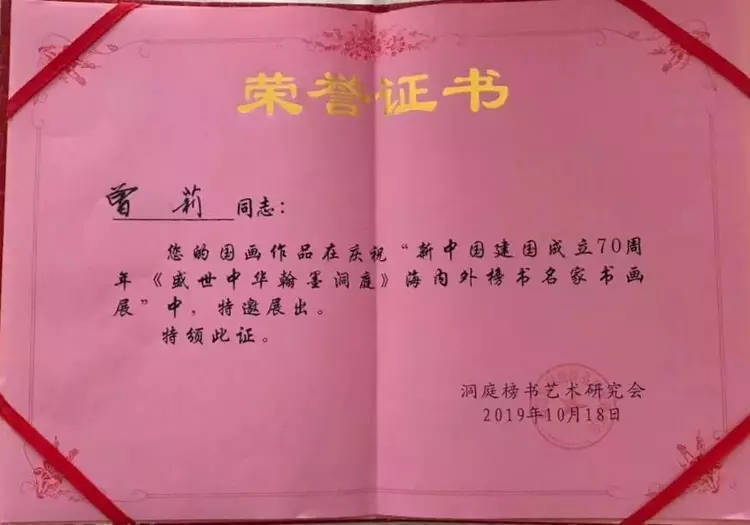 荣誉证书
曾莉同志：
您的国画作品在庆祝“新中国建国成立70周
年《盛世中华翰墨洞庭》海内外榜书名家书画
展”中，特邀展出。
特颁此证。
洞庭榜书艺术研究会
2019年10月18日